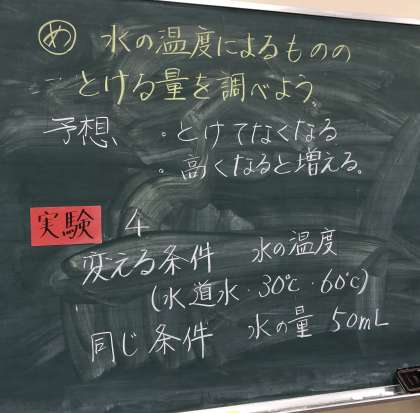 め 水の温度によるものの
とける量を調べよう。
予想、 ・とけてなくなる
・高くなると増える。
実験 4
変える条件 水の温度
(水道水・30℃・60℃)
同じ条件 水の量 50mL